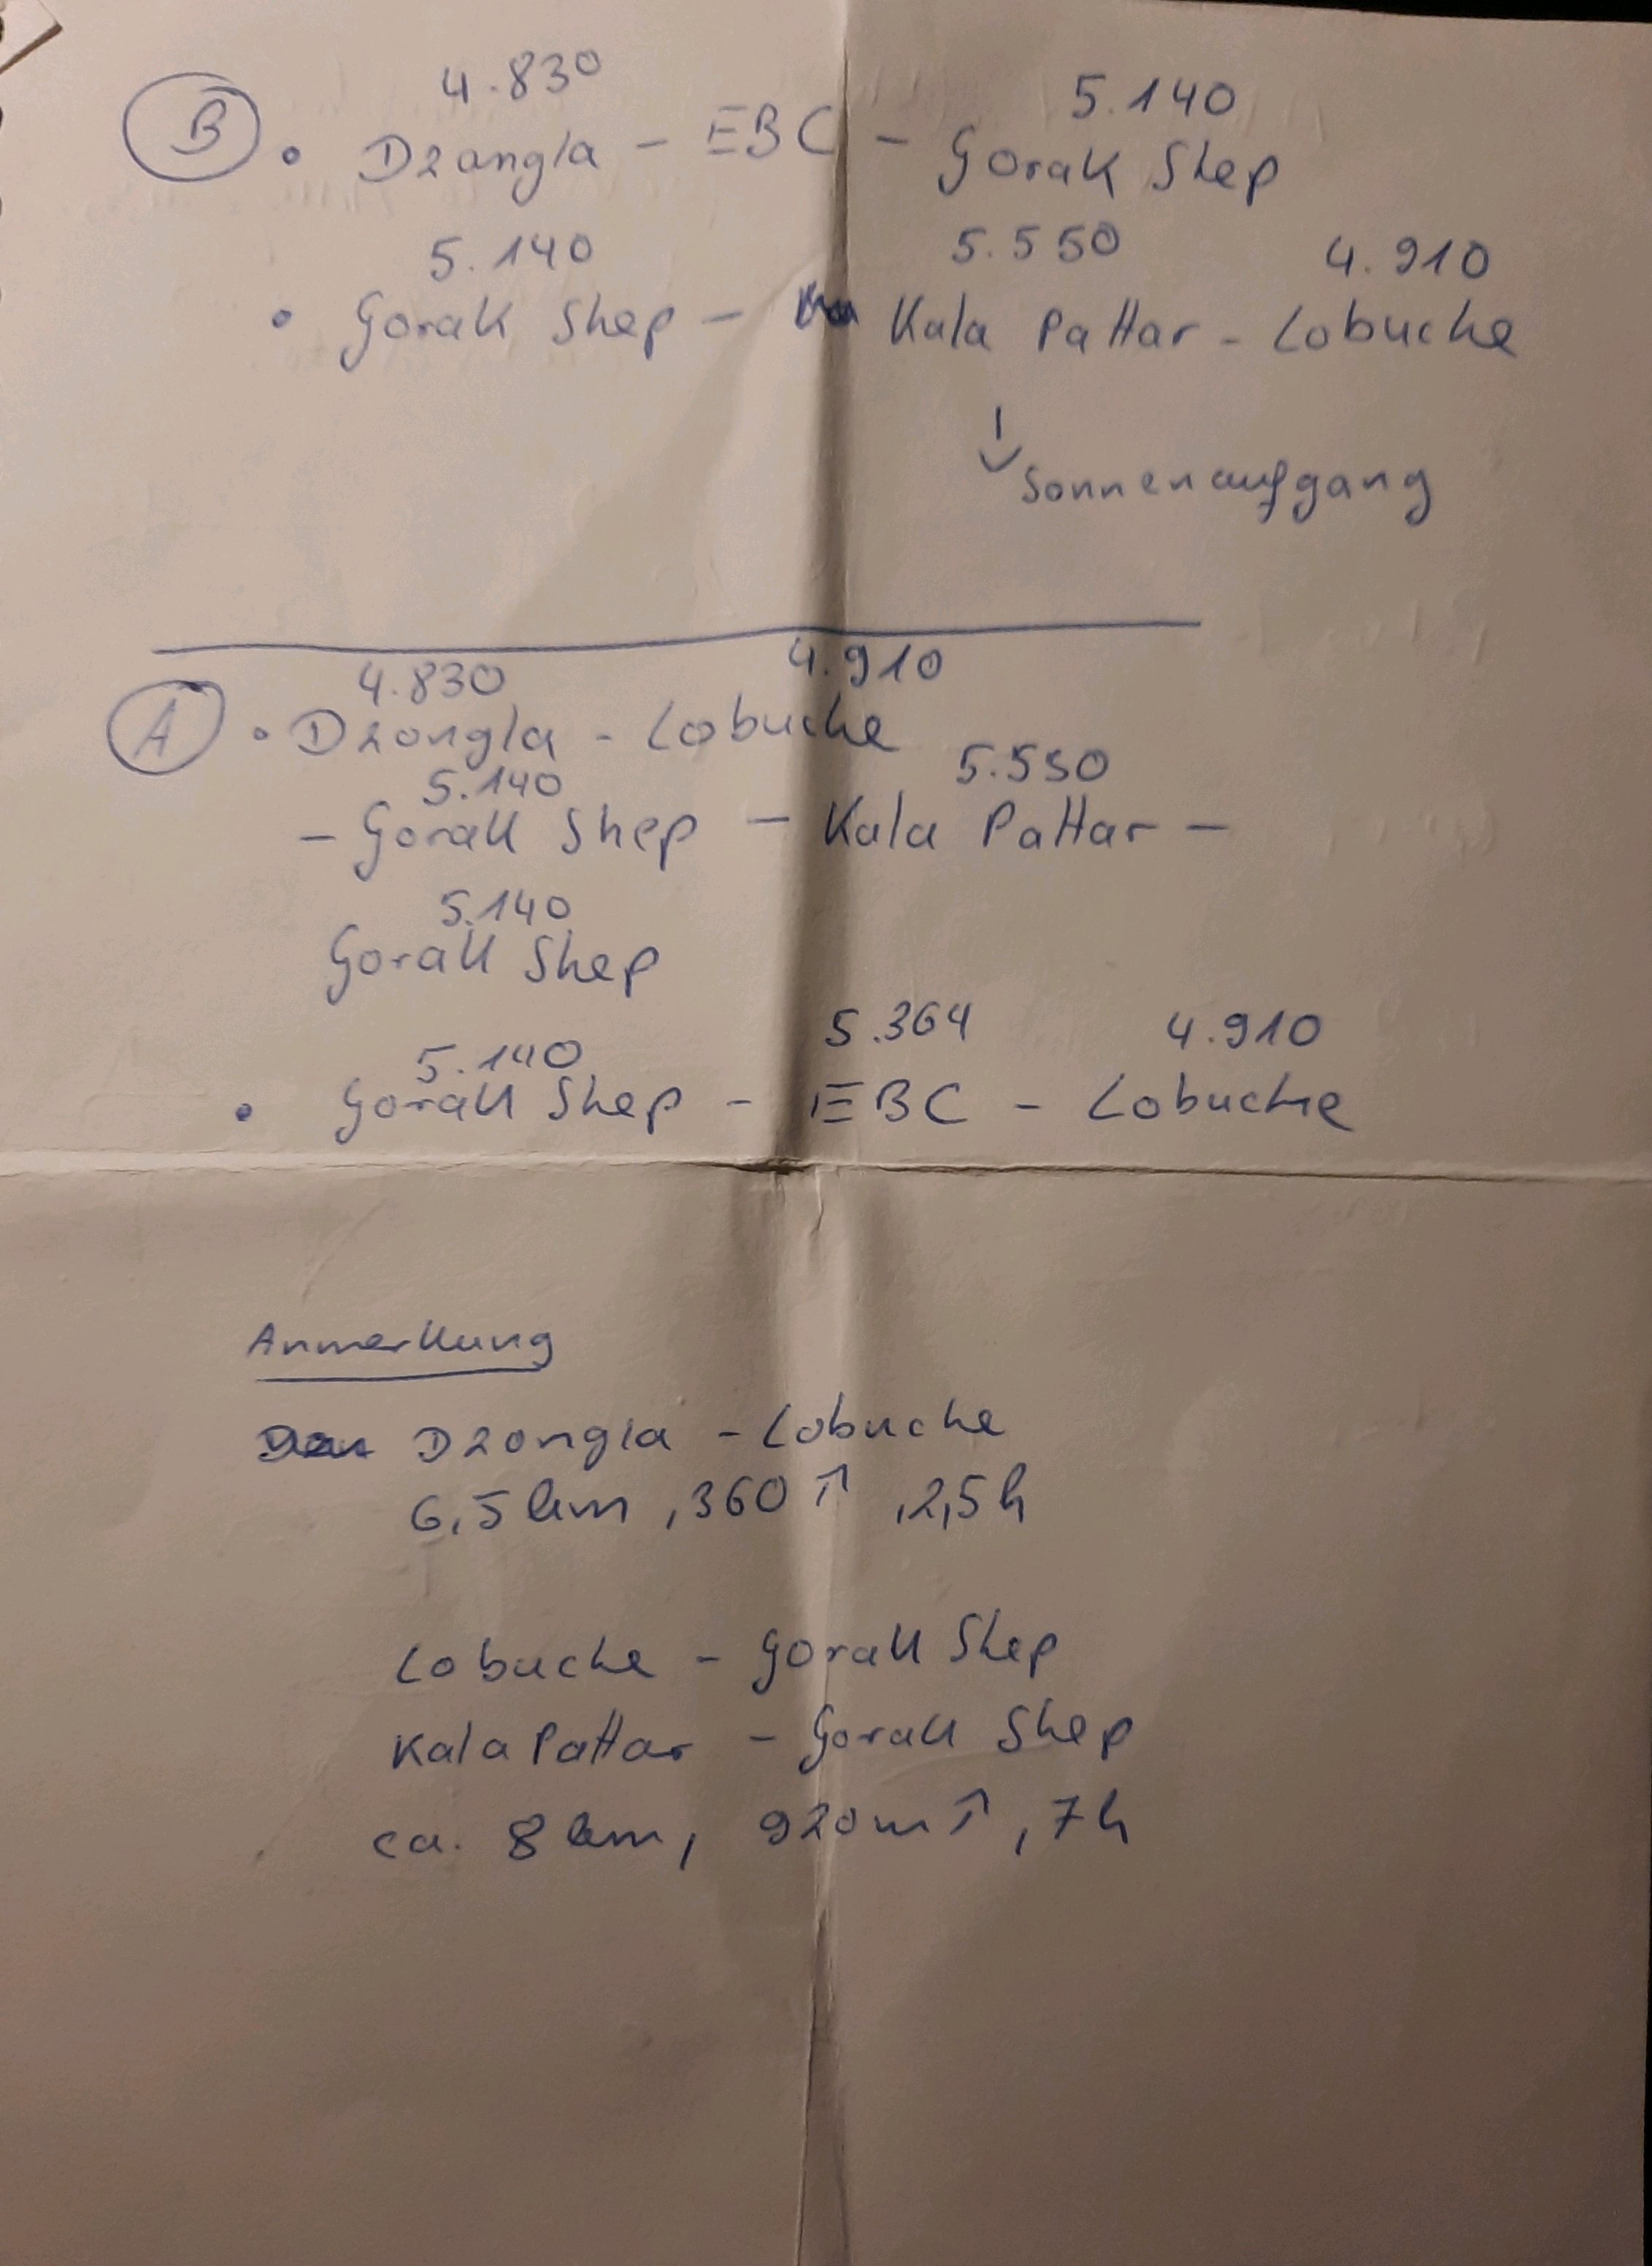 4.830 5.140
B • Dzongla - EBC - Gorak Shep
5.140 5.550 4.910
• Gorak Shep - Kala Pattar - Lobuche
↓ Sonnenaufgang
4.830 4.910
A • Dzongla - Lobuche
5.140 5.550
- Gorak Shep - Kala Pattar -
5.140
Gorak Shep
5.140 5.364 4.910
• Gorak Shep - EBC - Lobuche
Anmerkung
Dzongla - Lobuche
6,5 km, 360 ↑, 2,5h
Lobuche - Gorak Shep
Kala Pattar - Gorak Shep
ca. 8 km, 920m ↑, 7h